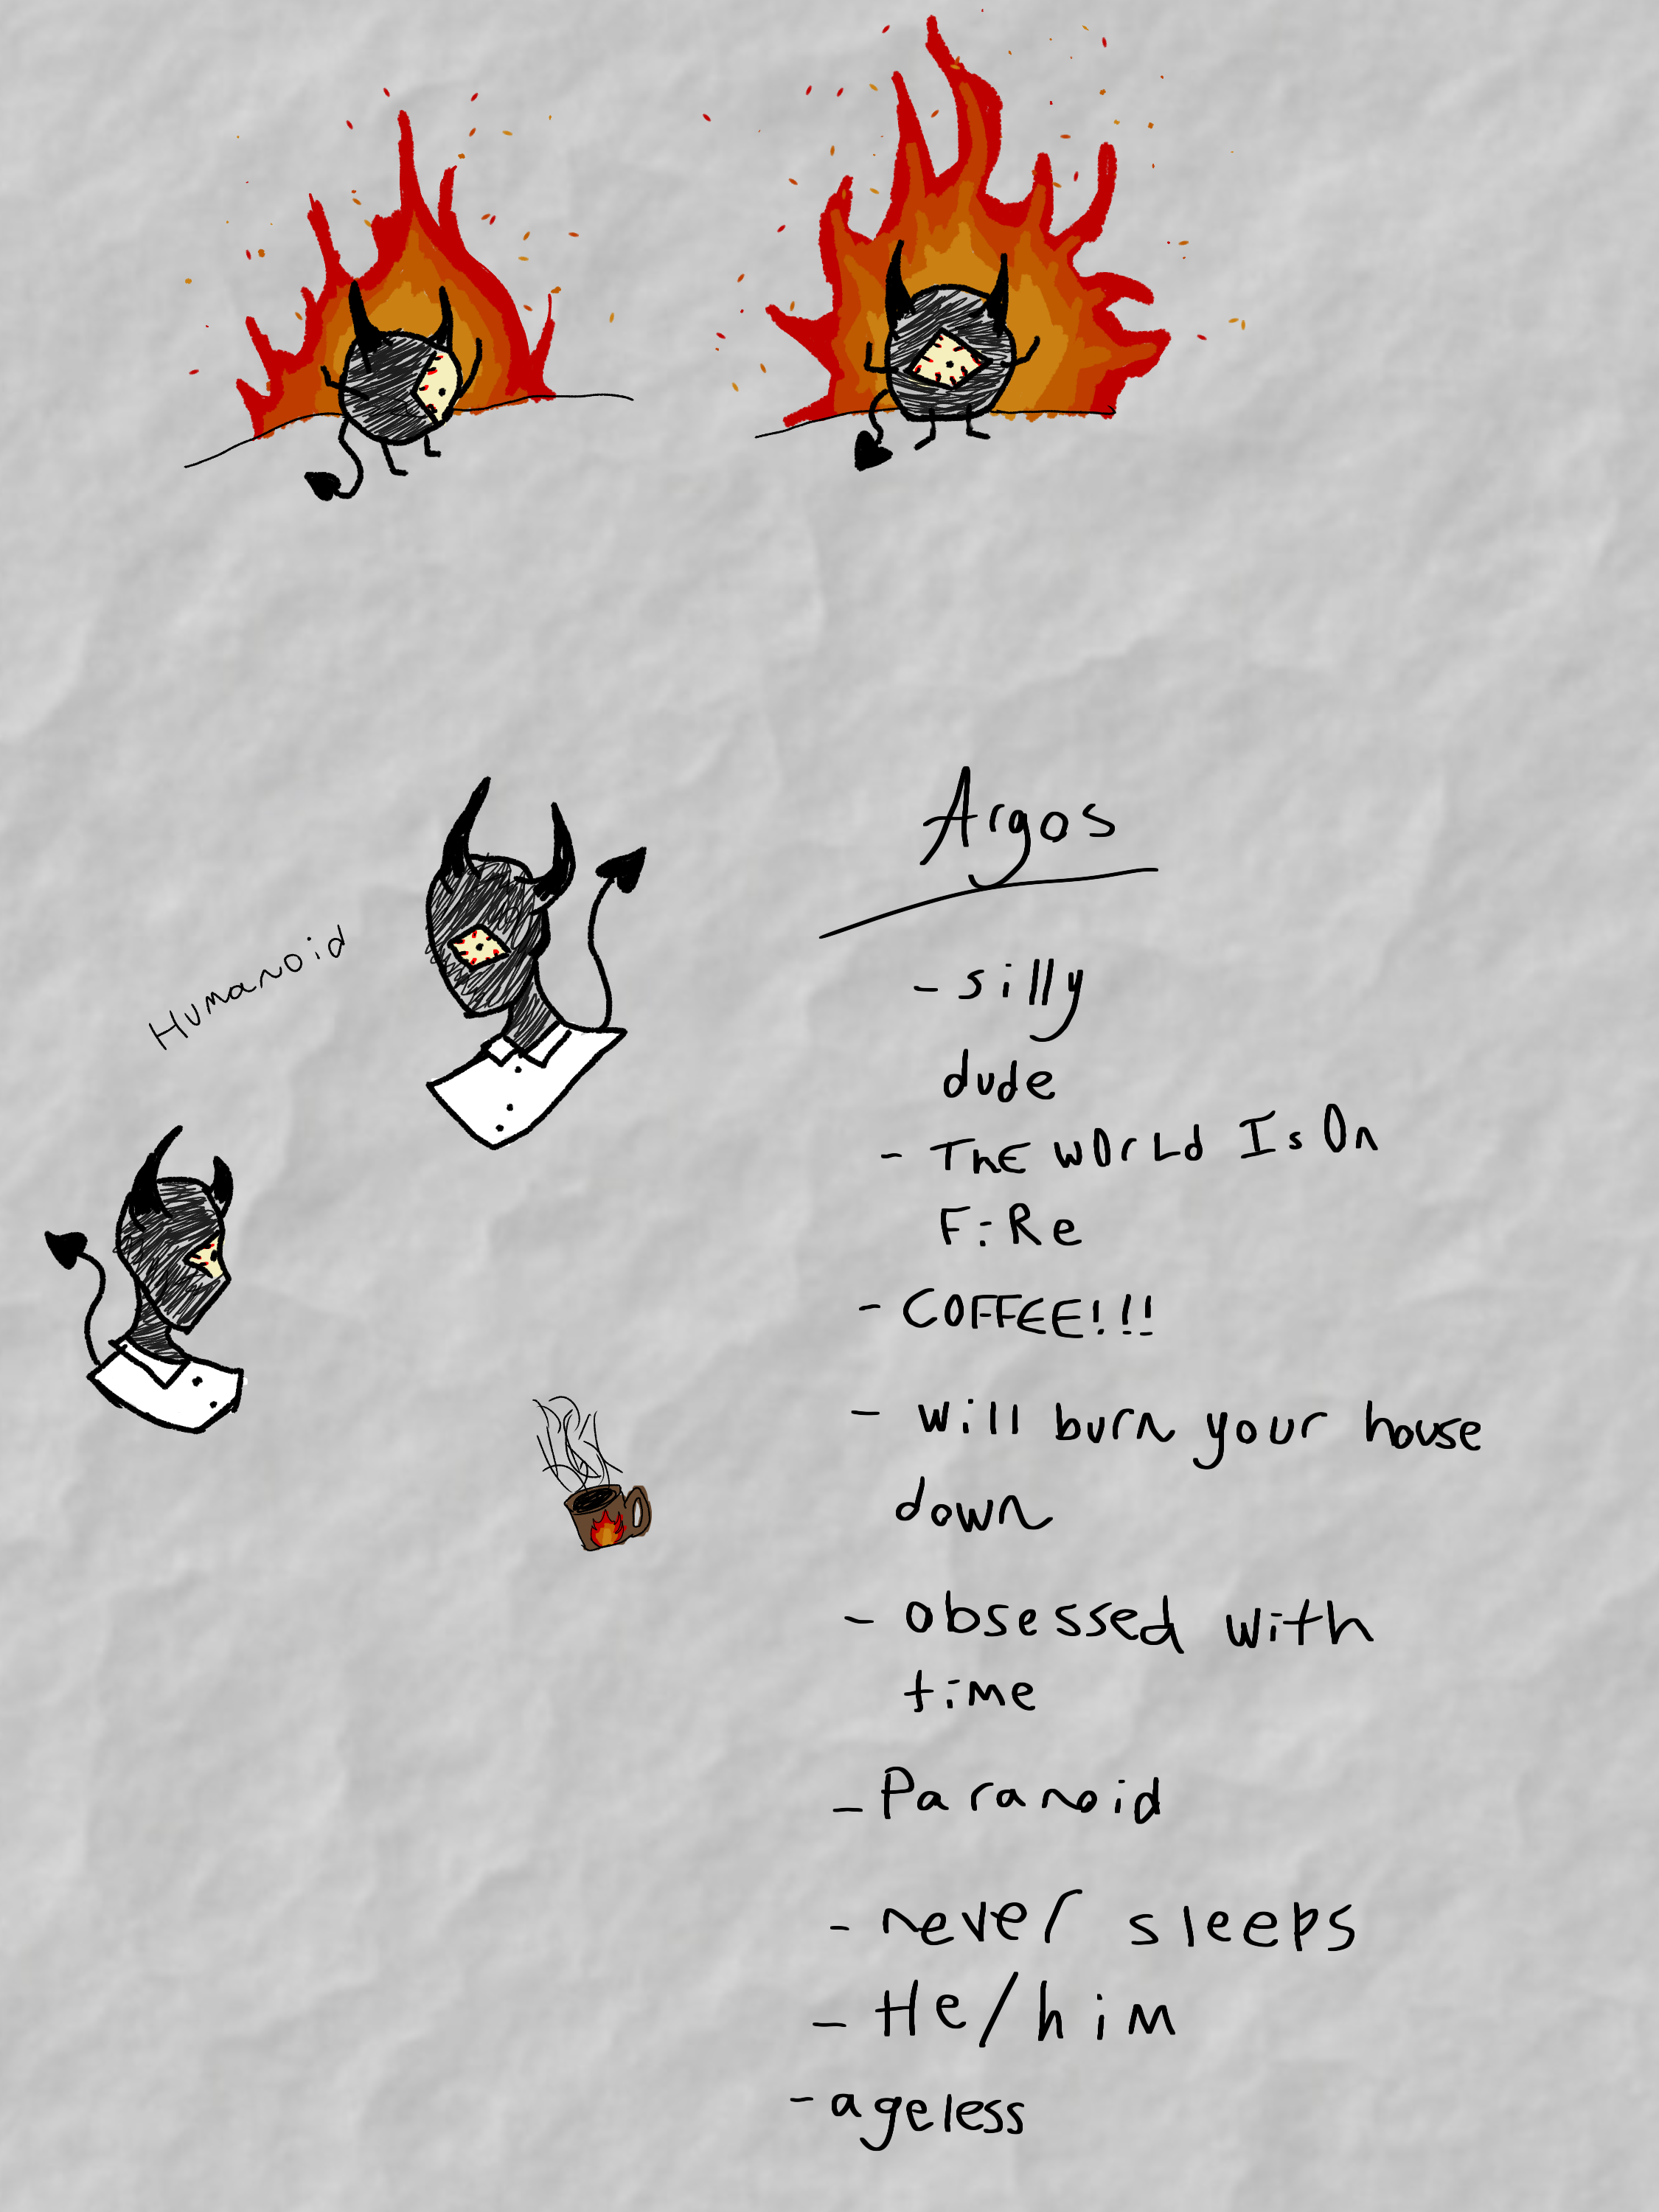 Argos
- silly
dude
- ThE wOrLd Is On
FiRe
- COFFEE!!!
- will burn your house
down
- obsessed with
time
- Paranoid
- never sleeps
- He/him
- ageless
Humanoid